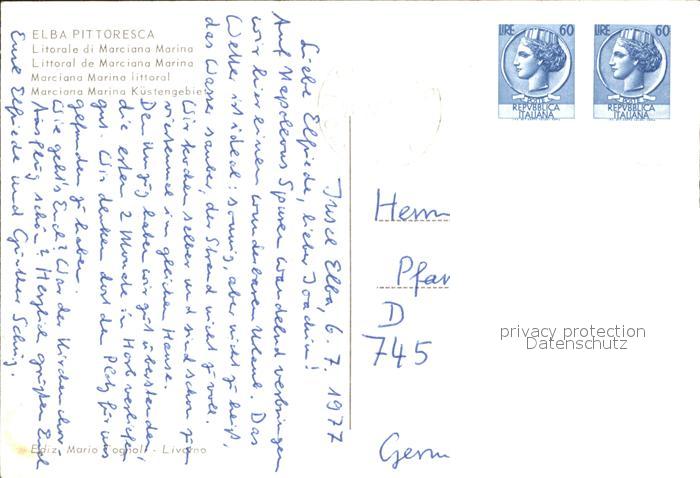 ELBA PITTORESCA
Litorale di Marciana Marina
Littoral de Marciana Marina
Marciana Marina littoral
Marciana Marina Küstengebiet
Insel Elba, 6. 7. 1977
Liebe Elfriede, lieber Joachim!
Auf Napoleons Spuren wandelnd verbringen
wir hier einen wunderbaren Urlaub. Das
Wetter ist ideal: sonnig, aber nicht zu heiß,
das Wasser sauber, der Strand nicht zu voll.
Wir kochen selber und sind schon zum
viertenmal im gleichen Hause.
Den Umzug haben wir gut überstanden,
die ersten 2 Monate in Horb verliefen
gut. Wir denken dort den Platz für uns
gefunden zu haben.
Wie geht's Euch? War der Kirchenchor-
Ausflug schön? Herzlich grüßen Euch
Eure Elfriede und Günther
Ediz. Mario - Livorno
LIRE 60
POSTE
REPVBBLICA
ITALIANA
LIRE 60
POSTE
REPVBBLICA
ITALIANA
Herrn
Pfar
D
745
Germ
privacy protection
Datenschutz